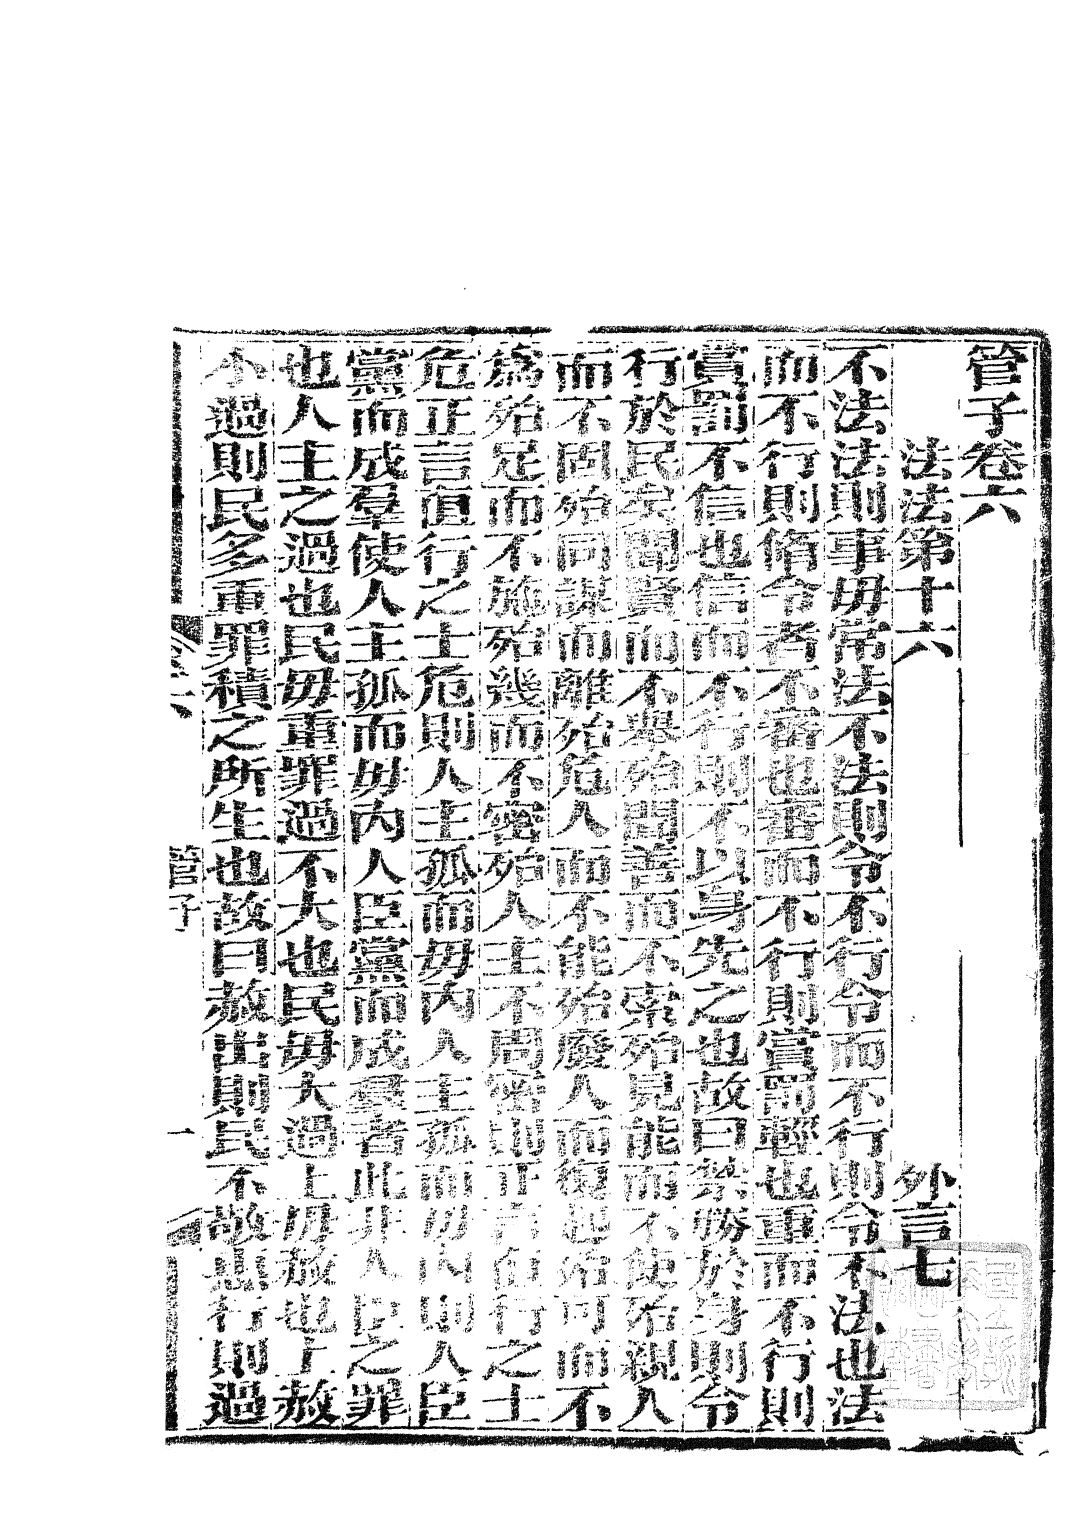 管子卷六
法法第十六 外言七
不法法則事毋常法不法則令不行令而不行則令不法也法
而不行則脩令者不審也審而不行則賞罰輕也重而不行則
賞罰不信也信而不行則不以身先之也故曰禁勝於身則令
行於民矣聞賢而不舉殆聞善而不索殆見能而不使殆親人
而不固殆同謀而離殆危人而不能殆廢人而復起殆可而不
為殆足而不施殆幾而不密殆人主不周密則正言直行之士
危正言直行之士危則人主孤而毋內人主孤而毋內則人臣
黨而成羣使人主孤而毋內人臣黨而成羣者此非人臣之罪
也人主之過也民毋重罪過不大也民毋大過上毋赦也上赦
小過則民多重罪積之所生也故曰赦出則民不敬惠行則過
管子 一